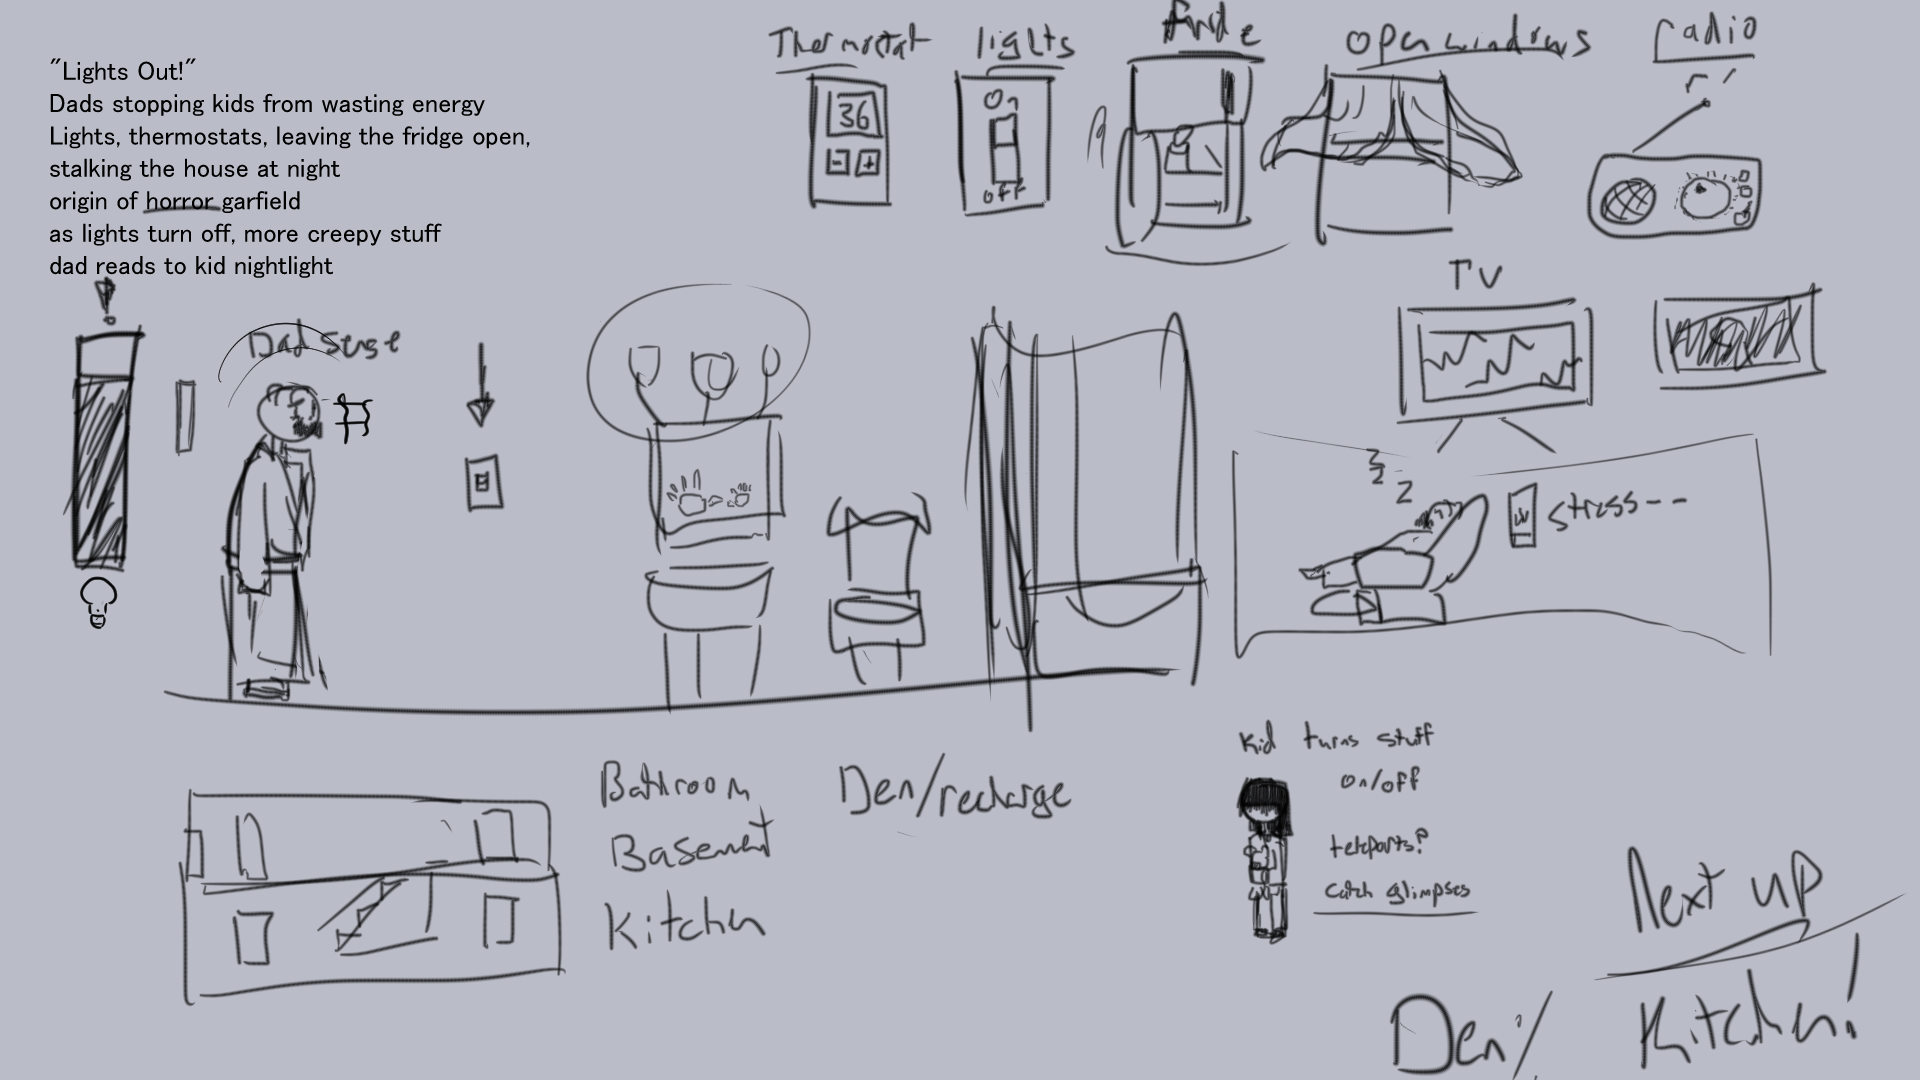 "Lights Out!"
Dads stopping kids from wasting energy
Lights, thermostats, leaving the fridge open,
stalking the house at night
origin of horror garfield
as lights turn off, more creepy stuff
dad reads to kid nightlight
Thermostat
36
- +
lights
On
off
fridge
open windows
radio
TV
Dad Sense
z
z
z
stress--
Bathroom
Basement
Kitchen
Den/recharge
Kid turns stuff
on/off
teleports?
catch glimpses
Next up
Den/ Kitchen!